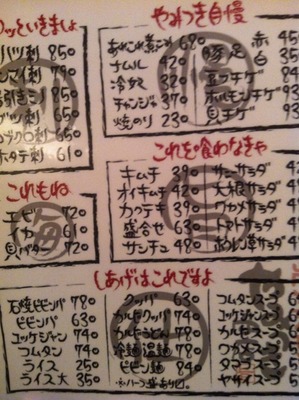 クッといきましょ
ハツ刺 850
センマイ刺 850
ガツ刺 650
コブクロ刺 650
ホタテ刺 610
これもね
エビ 720
イカ 610
貝バター 720
やみつき自慢
ナムル 420
冷奴 320
チャンジャ 370
焼のり 230
豚足 赤 450
白 350
ホルモンチゲ
貝チゲ
これを食わなきゃ
キムチ 390
オイキムチ 420
カクテキ 390
盛合せ 630
サンチュ 420
サニーサラダ
大根サラダ
ワカメサラダ
トマトサラダ
ホウレン草サラダ
しあげはこれですよ
石焼ビビンバ 780
ビビンバ 630
ユッケジャン 740
コムタン 740
ライス 250
ライス大 350
クッパ 630
カルビクッパ 740
カルビうどん 780
冷麺温麺 780
ビビン麺 840
※ハーフ盛あり〼。
コムタンスープ
ユッケジャンスープ
カルビスープ
ワカメスープ
タマゴスープ
ヤサイスープ